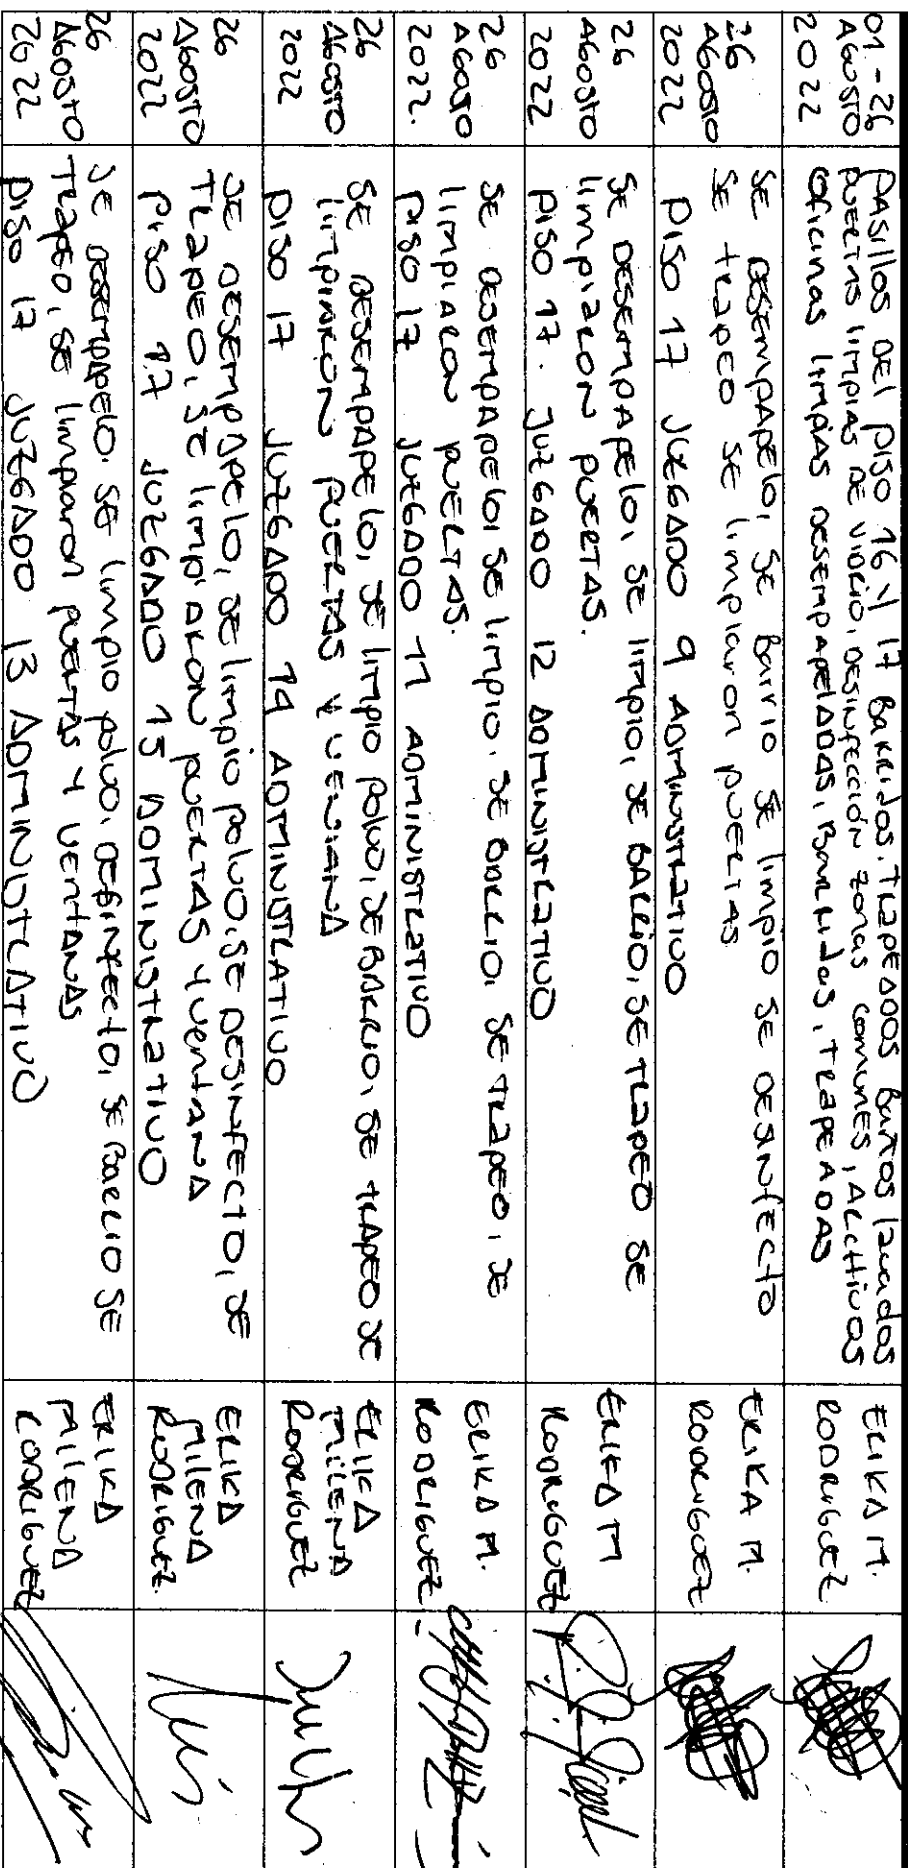 01-26
AGOSTO
2022
PASILLOS DEL PISO 16 Y 17 BARRIDOS. TRAPEADOS BAÑOS lavados
PUERTAS LIMPIAS DE VIDRIO, DESINFECCIÓN ZONAS COMUNES, ARCHIVOS
OFICINAS LIMPIAS DESEMPAPELADAS, BARRIDAS, TRAPEADAS
ERIKA M.
RODRIGUEZ.
26
AGOSTO
2022
SE DESEMPAPELO, SE BARRIO SE LIMPIO SE DESINFECTO
SE TRAPEO SE LIMPIARON PUERTAS
PISO 17 JUZGADO 9 ADMINISTRATIVO
ERIKA M.
RODRIGUEZ
26
AGOSTO
2022
SE DESEMPAPELO, SE LIMPIO, SE BARRIO, SE TRAPEO SE
LIMPIARON PUERTAS.
PISO 17. JUZGADO 12 ADMINISTRATIVO
ERIKA M
RODRIGUEZ
26
AGOSTO
2022.
SE DESEMPAPELO, SE LIMPIO, SE BARRIO, SE TRAPEO, SE
LIMPIARON PUERTAS.
PISO 17. JUZGADO 11 ADMINISTRATIVO
ERIKA M.
RODRIGUEZ.
26
AGOSTO
2022
SE DESEMPAPELO, SE LIMPIO POLVO, SE BARRIO, SE TRAPEO SE
LIMPIARON PUERTAS Y VENTANA
PISO 17 JUZGADO 14 ADMINISTRATIVO
ERIKA
MILENA
RODRIGUEZ
26
AGOSTO
2022
SE DESEMPAPELO, SE LIMPIO POLVO. SE DESINFECTO, SE
TRAPEO, SE LIMPIARON PUERTAS Y VENTANA
PISO 17 JUZGADO 15 ADMINISTRATIVO
ERIKA
MILENA
RODRIGUEZ.
26
AGOSTO
2022
SE DESEMPAPELO. SE LIMPIO POLVO, DESINFECTO, SE BARRIO SE
TRAPEO, SE LIMPIARON PUERTAS Y VENTANAS
PISO 17 JUZGADO 13 ADMINISTRATIVO
ERIKA
MILENA
RODRIGUEZ